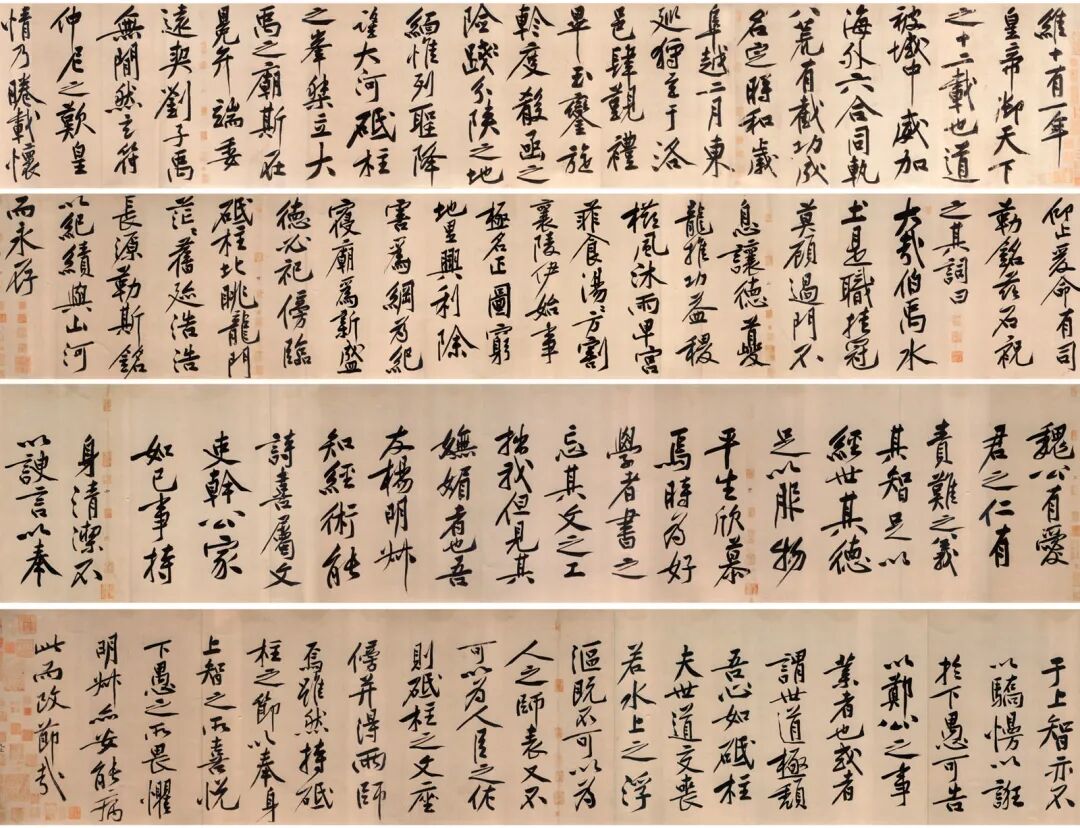 維十有一年
皇帝御天下
之十二載也道
被域中威加
海外六合同軌
八荒有截功成
名定時和歲
阜越二月東
巡狩至于洛
邑肆觀禮
畢玉鑾旋
軫度殽函之
險踐分陝之地
緬惟列聖降
望大河砥柱
之峯桀立大
禹之廟斯在
冕弁端委
遠契劉子禹
無間然玄符
仲尼之歎皇
情乃睠載懷
仰止爰命有司
勒銘茲石祝
之其詞曰
大哉伯禹水
土是職挂冠
莫顧過門不
息讓德夔
龍推功益稷
櫛風沐雨卑宮
菲食湯〻方割
襄陵伊始事
極名正圖窮
地里興利除
害爲綱爲紀
寢廟爲新盛
德必祀傍臨
砥柱北眺龍門
茫〻舊迹浩浩
長源勒斯銘
以紀績與山河
而永存
魏公有愛
君之仁有
責難之義
其智足以
經世其德
足以服物
平生欣慕
焉時爲好
學者書之
忘其文之工
拙我但見其
嫵媚者也吾
友楊明叔
知經術能
詩喜屬文
吏幹公家
如己事持
身清潔不
以諛言以奉
于上智亦不
以驕慢以誑
於下愚可告
以鄭公之事
業者也或者
謂世道極頹
吾心如砥柱
夫世道交喪
若水上之浮
漚既不可以爲
人之師表又不
可以爲人臣之佐
則砥柱之文座
傍并得兩師
焉雖然持砥
柱之節以奉身
上智之所喜悅
下愚之所畏懼
明叔亦安能病
此而改節哉